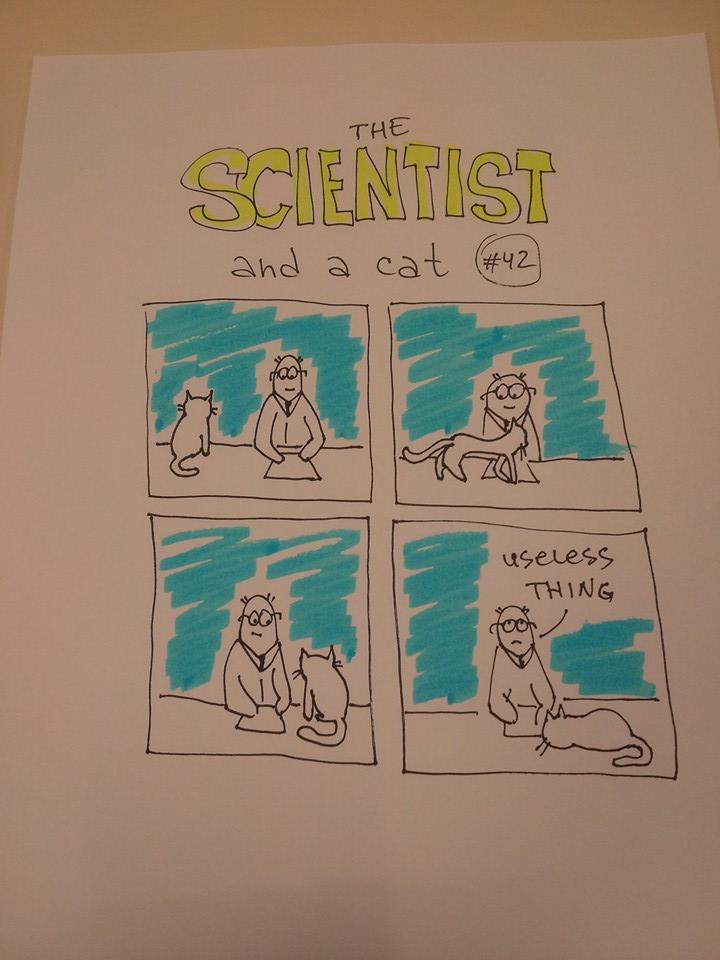 THE
SCIENTIST
and a cat #42
useless
THING